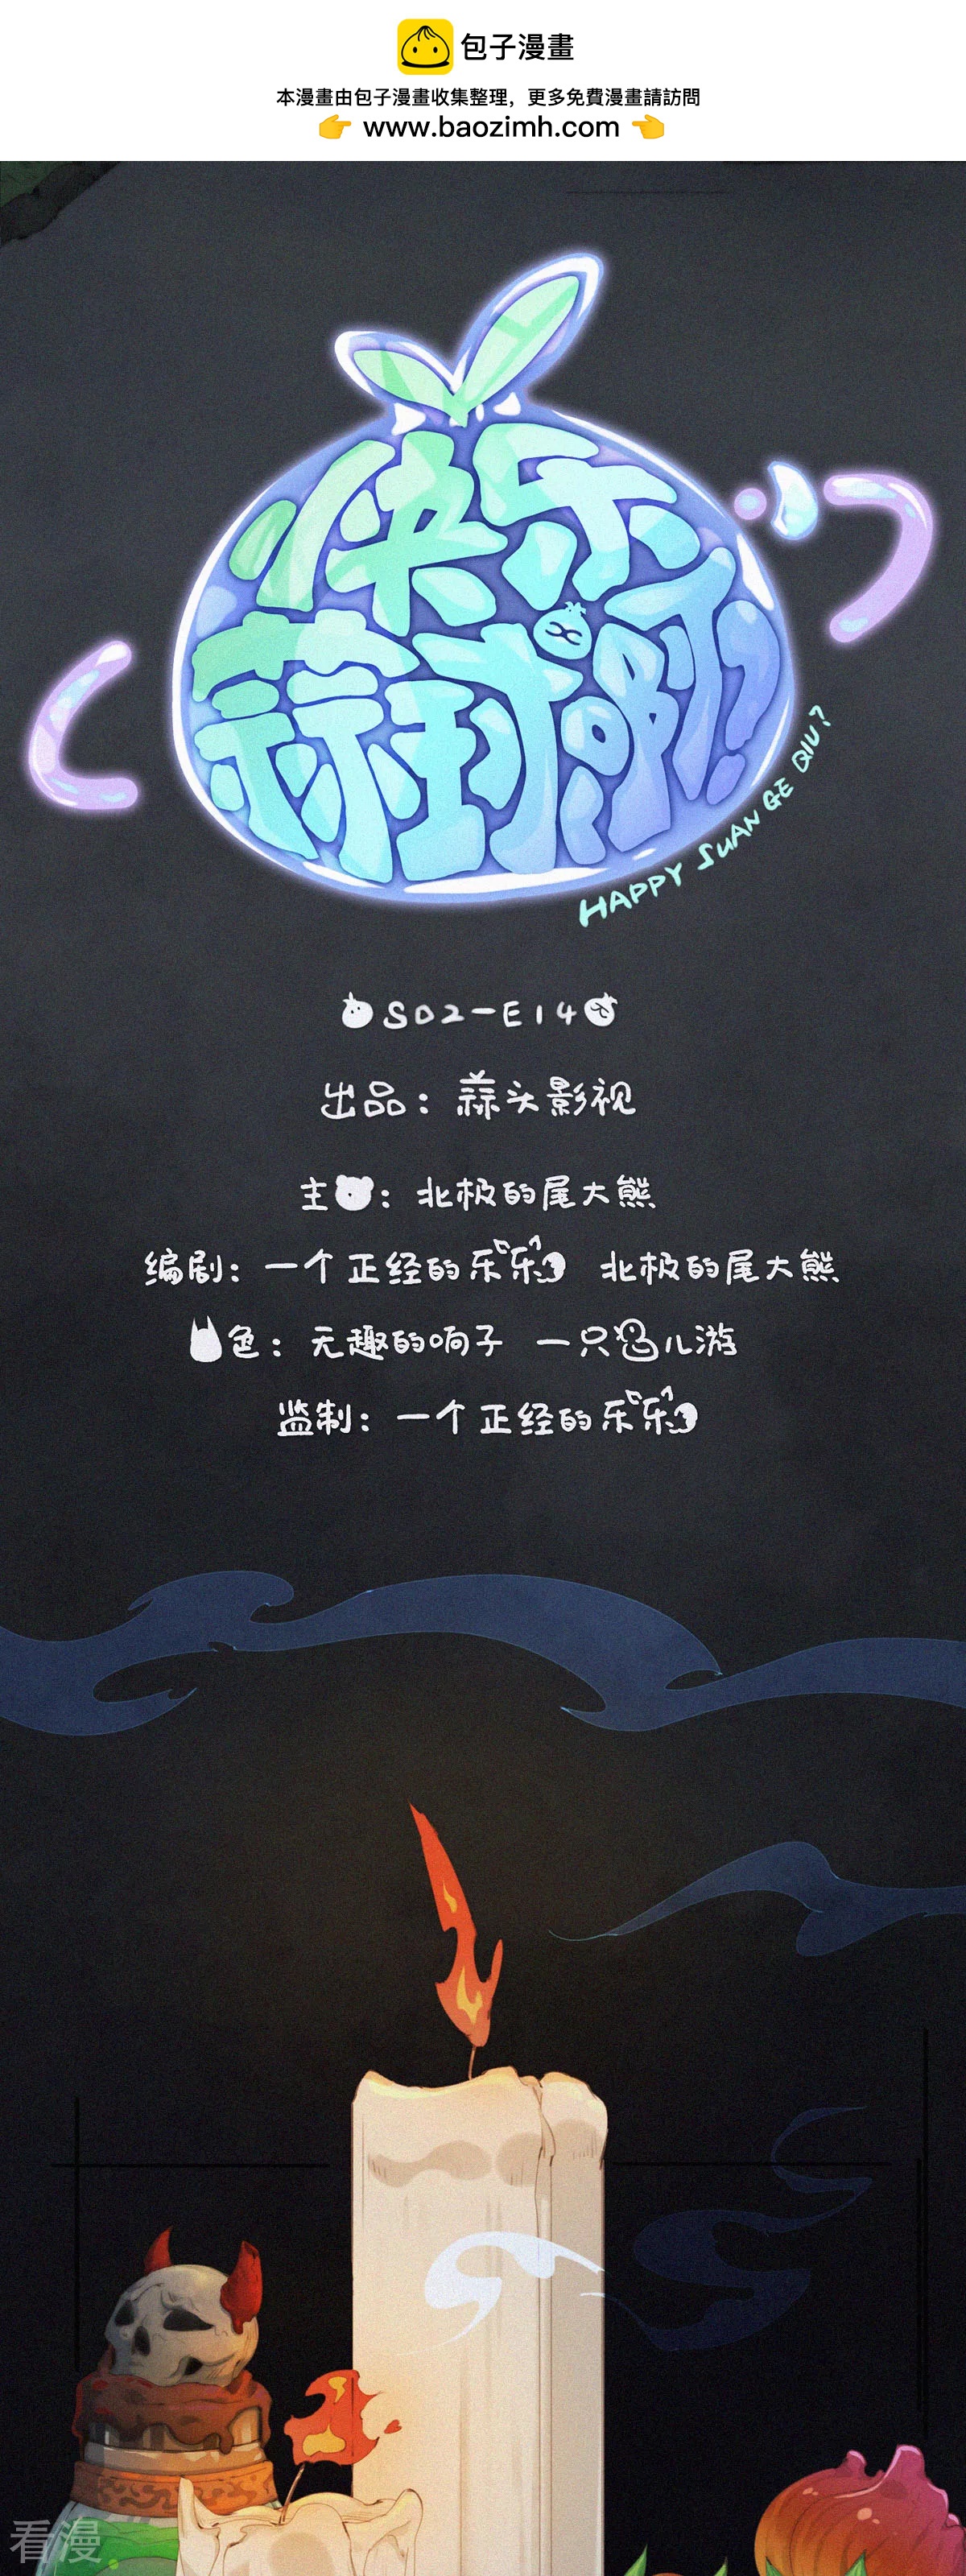 包子漫畫
本漫畫由包子漫畫收集整理，更多免費漫畫請訪問
👉 www.baozimh.com 👈
快乐
蒜球啊？
HAPPY SUAN GE QIU?
S02-E14
出品：蒜头影视
主：北极的尾大熊
编剧：一个正经的乐乐 北极的尾大熊
色：无趣的响子 一只儿游
监制：一个正经的乐乐
看漫